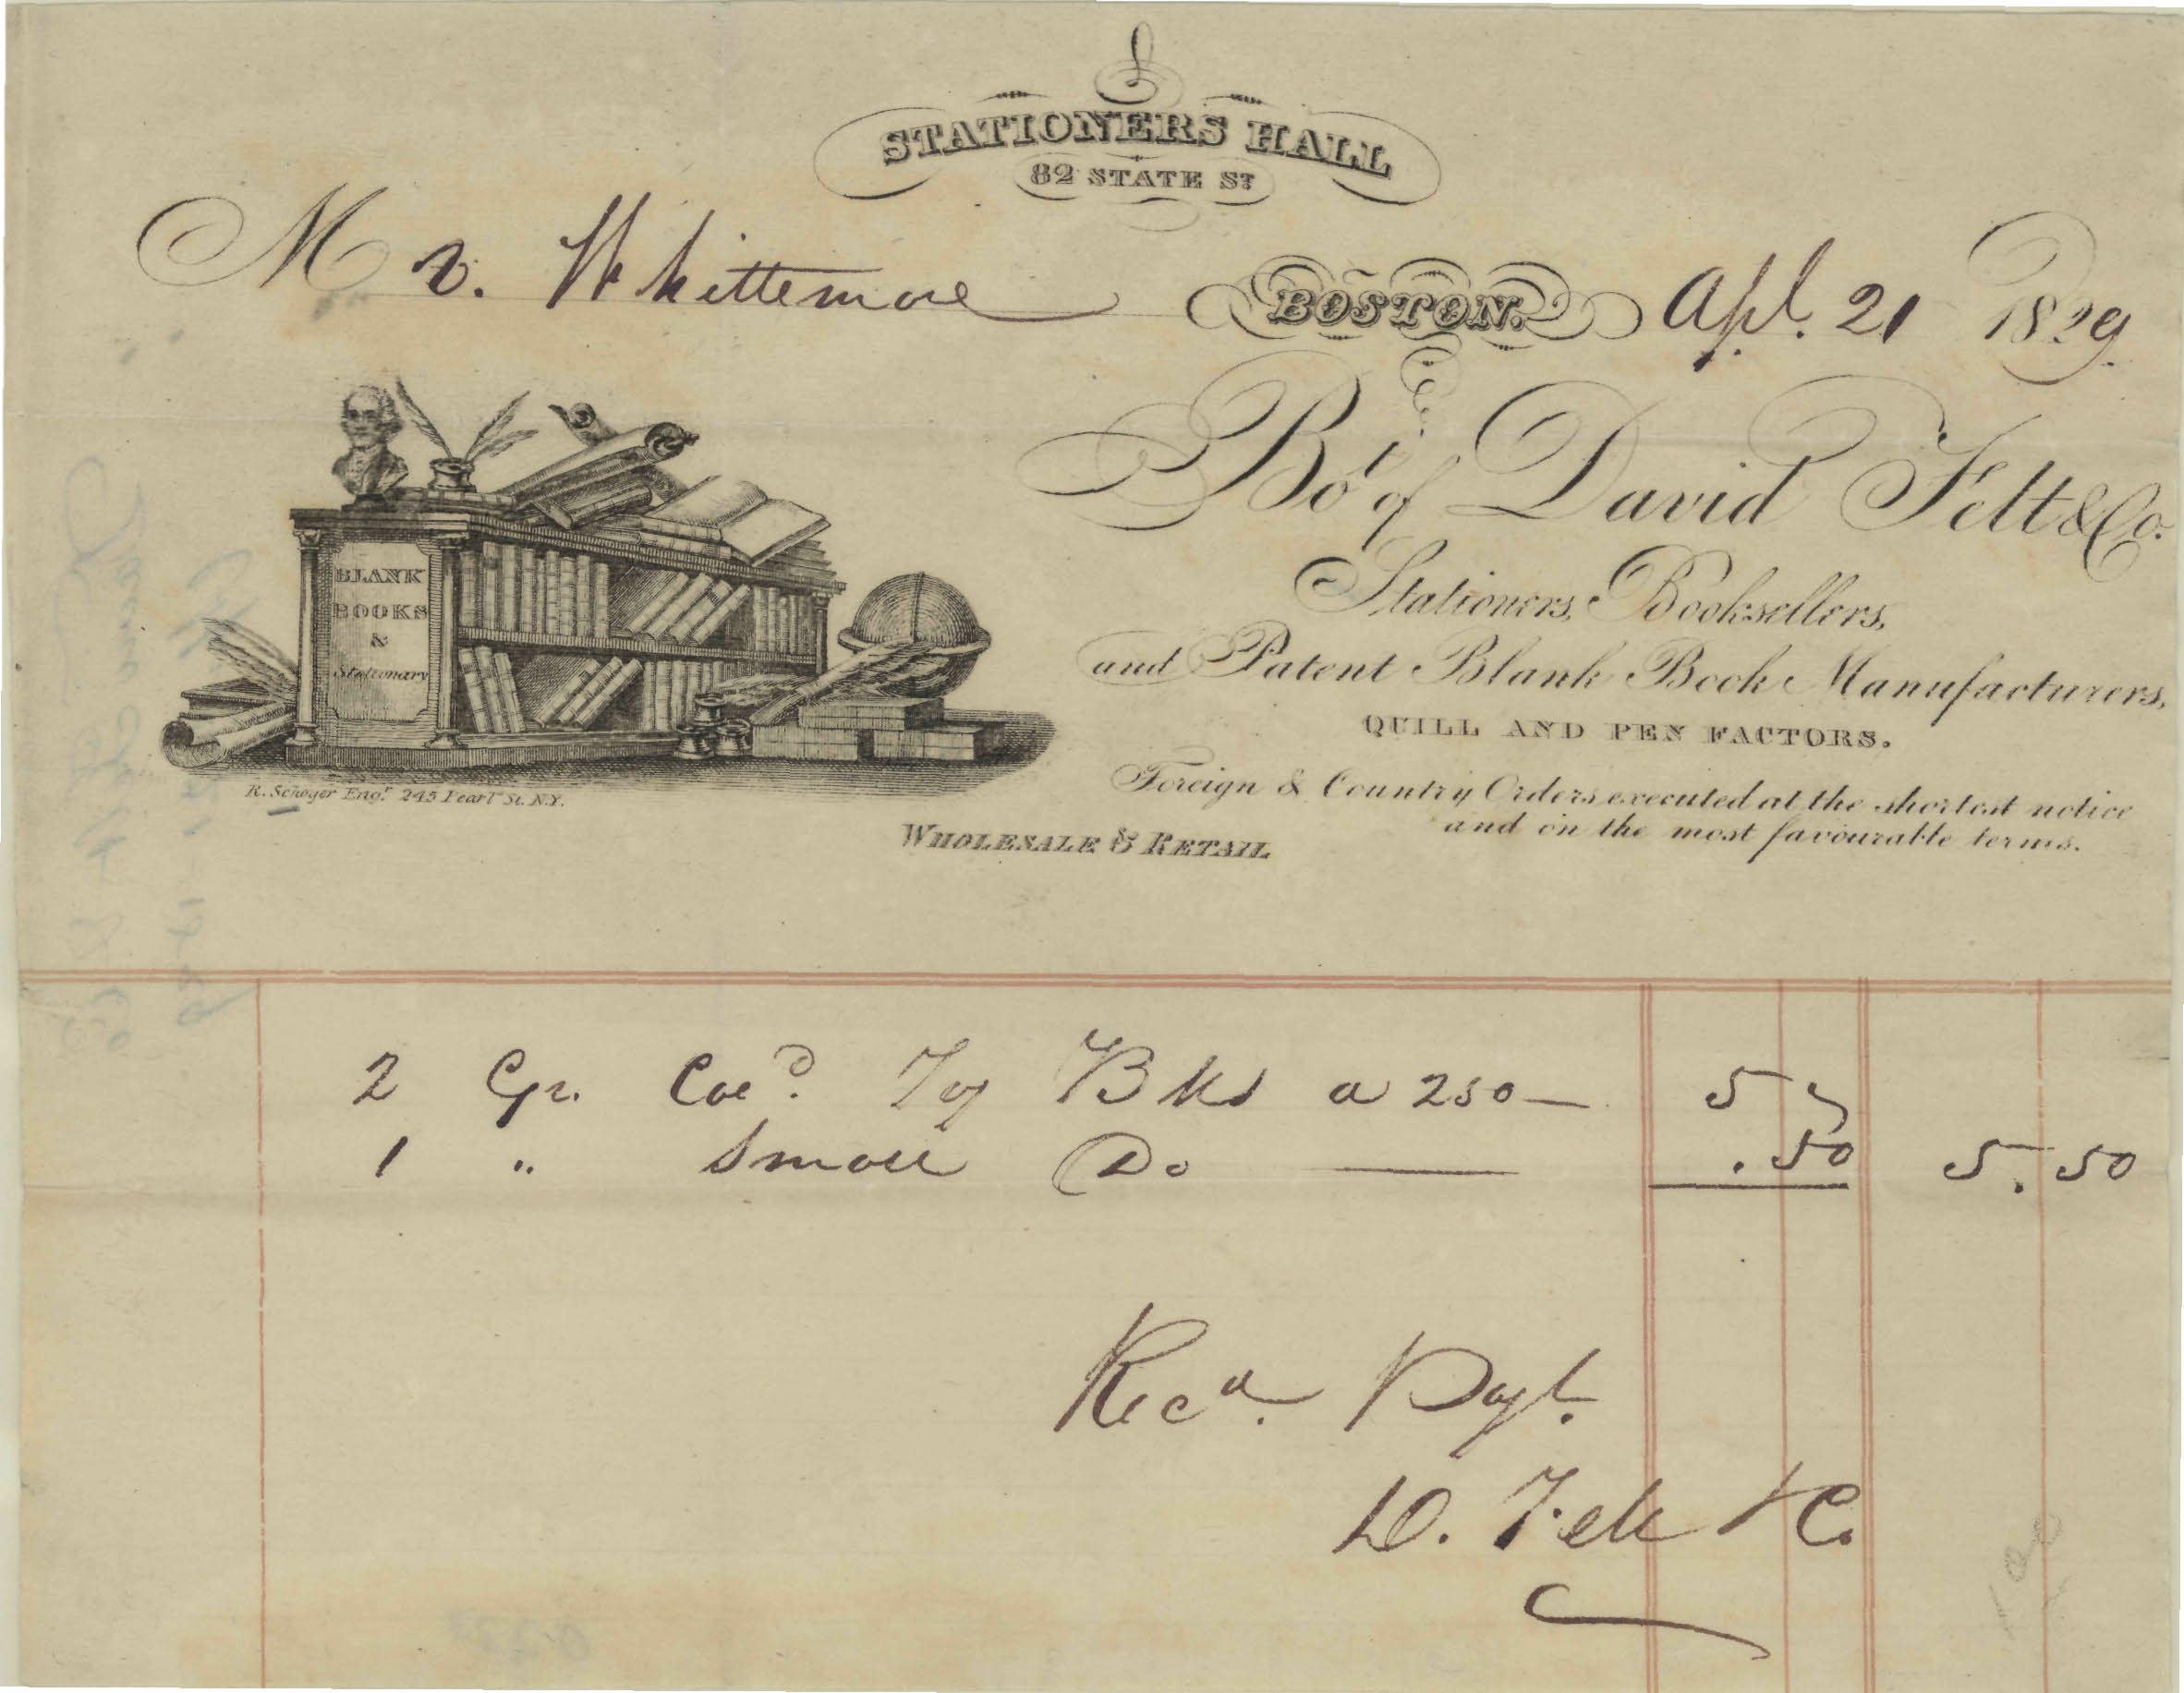 STATIONERS HALL
82 STATE ST
Mr. Whittemore
BOSTON. Apl. 21 1829.
Bot of David Felt & Co.
Stationers, Booksellers,
and Patent Blank Book Manufacturers,
QUILL AND PEN FACTORS.
Foreign & Country Orders executed at the shortest notice
and on the most favourable terms.
BLANK
BOOKS
&
Stationary
R. Schoyer Engr. 245 Pearl St. N.Y.
WHOLESALE & RETAIL
2 Gr. Cold Toy Bks a 250 — 5
1 " Small Do — .50 5.50
Recd. Payt.
D. Felt & Co.